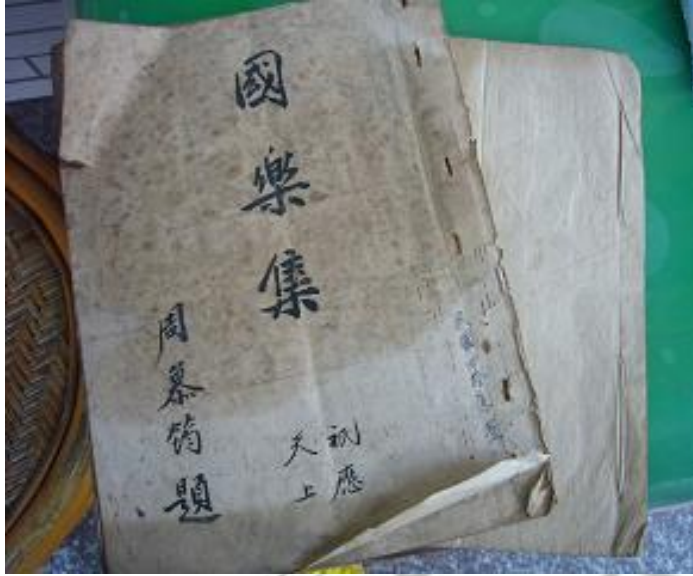 國樂集
祇應
天上
周慕筠題